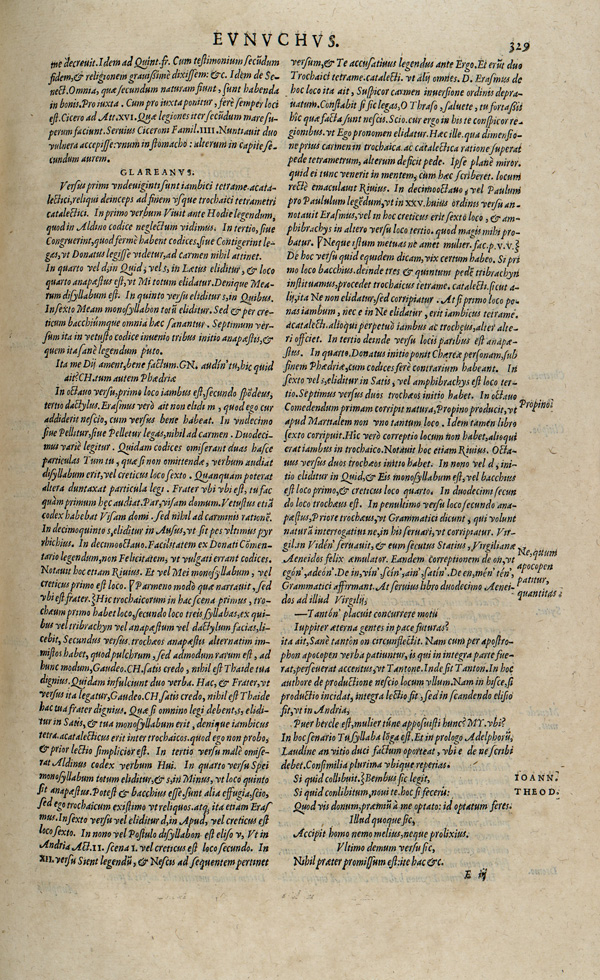 EVNVCHVS.
329
me decreuit. Idem ad Quint.fr. Cum testimonium secūdum
fidem,& religionem grauissimè dixissem: &c. Idem de Se-
nect.Omnia, quæ secundum naturam fiunt, sunt habenda
in bonis.Pro iuxta. Cum pro iuxta ponitur, ferè semper loci
est.Cicero ad Att.xvi.Quæ legiones iter secūdum mare su-
perum faciunt. Seruius Ciceroni Famil.IIII.Nuntiauit duo
vulnera accepisse:vnum in stomacho: alterum in capite se-
cundum aurem.
GLAREANVS.
Versus primi vndeuiginti sunt iambici tetrame.acata-
lectici,reliqui deinceps ad finem vsque trochaici tetrametri
catalectici. In primo verbum Viuit ante Hodie legendum,
quod in Aldino codice neglectum vidimus. In tertio,siue
Congruerint,quod fermè habent codices,siue Contigerint le-
gas,vt Donatus legisse videtur,ad carmen nihil attinet.
In quarto vel d,in Quid, vel s, in Lætus eliditur, & loco
quarto anapæstus est,vt Mi totum elidatur.Denique Mea-
rum disyllabum est. In quinto versu eliditur s, in Quibus.
In sexto Meam monosyllabon totū eliditur.Sed & per cre-
ticum bacchiūmque omnia hæc sanantur. Septimum ver-
sum ita in vetusto codice inuenio tribus initio anapæstis,&
quem ita sanè legendum puto.
Ita me Dij ament,bene factum.GN. audin' tu, hic quid
ait?CH.tum autem Phædriæ
In octauo versu,primo loco iambus est,secundo spōdeus,
tertio dactylus. Erasmus verò ait non elidi m , quod ego cur
addiderit nescio, cum versus bene habeat. In vndecimo
siue Pellitur,siue Pelletur legas,nihil ad carmen . Duodeci-
mus variè legitur . Quidam codices omiserant duas hasce
particulas Tum tu , quæ si non omittendæ , verbum audiat
disyllabum erit,vel creticus loco sexto . Quanquam poterat
altera duntaxat particula legi . Frater vbi vbi est, tu fac
quàm primum hæc audiat.Par,visam domum.Vetustus etiā
codex habebat Visam domi . sed nihil ad carminis rationē.
In decimoquinto s,eliditur in Ausus,vt sit pes vltimus pyr
rhichius. In decimooctauo.Facilitatem ex Donati Cōmen-
tario legendum,non Felicitatem, vt vulgati errant codices.
Notauit hoc etiam Riuius. Et vel Mei monosyllabum , vel
creticus primo est loco. Parmeno modò quæ narrauit , sed
vbi est frater. Hic trochaicorum in hac scena primus , tro-
chæum primo habet loco,secundo loco treis syllabas, ex qui-
bus vel tribrachyn vel anapæstum vel dactylum facias,li-
cebit, Secundus versus, trochæos anapæstis alternatim im-
mistos habet, quod pulchrum , sed admodum rarum est , ad
hunc modum,Gaudeo.CH.satis credo , nihil est Thaide tua
dignius.Quidam insulciunt duo verba. Hac, & Frater,vt
versus ita legatur,Gaudeo.CH.satis credo,nihil est Thaide
hac tua frater dignius. Quæ si omnino legi debent,s, elidi-
tur in Satis, & tua monosyllabum erit , denique iambicus
tetra.acatalecticus erit inter trochaicos.quod ego non probo,
& prior lectio simplicior est. In tertio versu malè omise-
rat Aldinus codex verbum Hui. In quarto versu Spei
monosyllabon totum eliditur,& s,in Minus, vt loco quinto
sit anapæstus.Potest & bacchius esse,sunt alia effugia,scio,
sed ego trochaicum existimo vt reliquos.atq, ita etiam Eras
mus.In sexto versu vel eliditur d,in Apud, vel creticus est
loco sexto. In nono vel Postulo disyllabon est eliso v, Vt in
Andria Act.II. scena I. vel creticus est loco secundo. In
XII.versu Sient legendū, & Nescis ad sequentem pertinet
versum,& Te accusatiuus legendus ante Ergo. Et erūt duo
Trochaici tetrame.catalecti. vt alij omnes. D. Erasmus de
hoc loco ita ait , Suspicor carmen inuersione ordinis depra-
uatum.Constabit si sic legas,O Thraso ,saluete , tu fortassis
hîc quæ facta sunt nescis.Scio.cur ergo in his te conspicor re-
gionibus. vt Ego pronomen elidatur.Hæc ille. qua dimensio-
ne prius carmen in trochaica. ac catalectica ratione superat
pede tetrametrum, alterum deficit pede. Ipse planè miror.
quid ei tunc venerit in mentem, cum hæc scriberet. locum
rectè emaculauit Riuius. In decimooctauo , vel Paulum
pro Paululum legēdum,vt in xxv.huius ordinis versu an-
notauit Erasmus,vel in hoc creticus erit sexto loco , & am-
phibrachys in altero versu loco tertio. quod magis mihi pro-
batur. Neque istum metuas ne amet mulier.fac.p.v.v.
De hoc versu quid equidem dicam,vix certum habeo. Si pri
mo loco bacchius.deinde tres & quintum pedē tribrachyn
instituamus,procedet trochaicus tetrame. catalecti.sicut a-
lij,ita Ne non elidatur,sed corripiatur . At si primo loco po-
nas iambum , nec e in Ne elidatur , erit iambicus tetrame.
acatalecti.alioqui perpetuò iambus ac trochæus,alter alte-
ri officiet. In tertio deinde versu locis paribus est anapæ-
stus. In quarto.Donatus initio ponit Chæreæ personam,sub
finem Phædriæ,cum codices ferè contrarium habeant. In
sexto vel s,eliditur in Satis, vel amphibrachys est loco ter-
tio.Septimus versus duos trochæos initio habet. In octauo
Comedendum primam corripit natura,Propino producit,vt
apud Martialem non vno tantum loco. Idem tamen libro
sexto corripuit.Hîc verò correptio locum non habet,alioqui
erat iambus in trochaico.Notauit hoc etiam Riuius. Octa-
uus versus duos trochæos initio habet. In nono vel d, ini-
tio eliditur in Quid,& Eis monosyllabum est,vel bacchius
est loco primo,& creticus loco quarto. In duodecimi secun
do loco trochæus est. In penultimo versu loco secundo ana-
pæstus,Priore trochæus, vt Grammatici dicunt , qui volunt
naturā interrogatiui ne,in his seruari,vt corripiatur. Vir-
gil.in Vidén' seruauit, & eum secutus Statius ,Virgilianæ
Aeneidos felix æmulator. Eandem correptionem de on,vt
egón',adeón'.De in,vin',scin',ain',satin'.De en,mén' tén',
Grammatici affirmant.At seruius libro duodecimo Aenei-
dos ad illud Virgilij;
—Tantón' placuit concurrere motu
Iuppiter æterna gentes in pace futuras?
ita ait,Sanè tantón on circunflectit. Nam cum per apostro-
phon apocopen verba patiuntur, is qui in integra parte fue-
rat,perseuerat accentus,vt Tantone.Inde fit Tanton.In hoc
authore de productione nescio locum vllum.Nam in hisce,si
productio incidat, integra lectio fit , sed in scandendo elisio
fit,vt in Andria;
Puer hercle est,mulier túne apposuisti hunc?MY.vbi?
In hoc senario Tu syllaba lōga est.Et in prologo Adelphorū,
Laudine an vitio duci factum oporteat , vbi e de ne scribi
debet.Consimilia plurima vbique reperias.
Si quid collibuit. Bembus sic legit,
Si quid conlibitum,noui te.hoc si fecerū:
Quod vis donum,præmiū à me optato: id optatum feres.
Illud quoque sic,
Accipit homo nemo melius,neque prolixius.
Vltimo demum versu sic,
Nihil præter promissum est:ite hac &c.
E iij
Propino
Ne, quum
apocopen
patitur,
quantitas
IOANN.
THEOD.